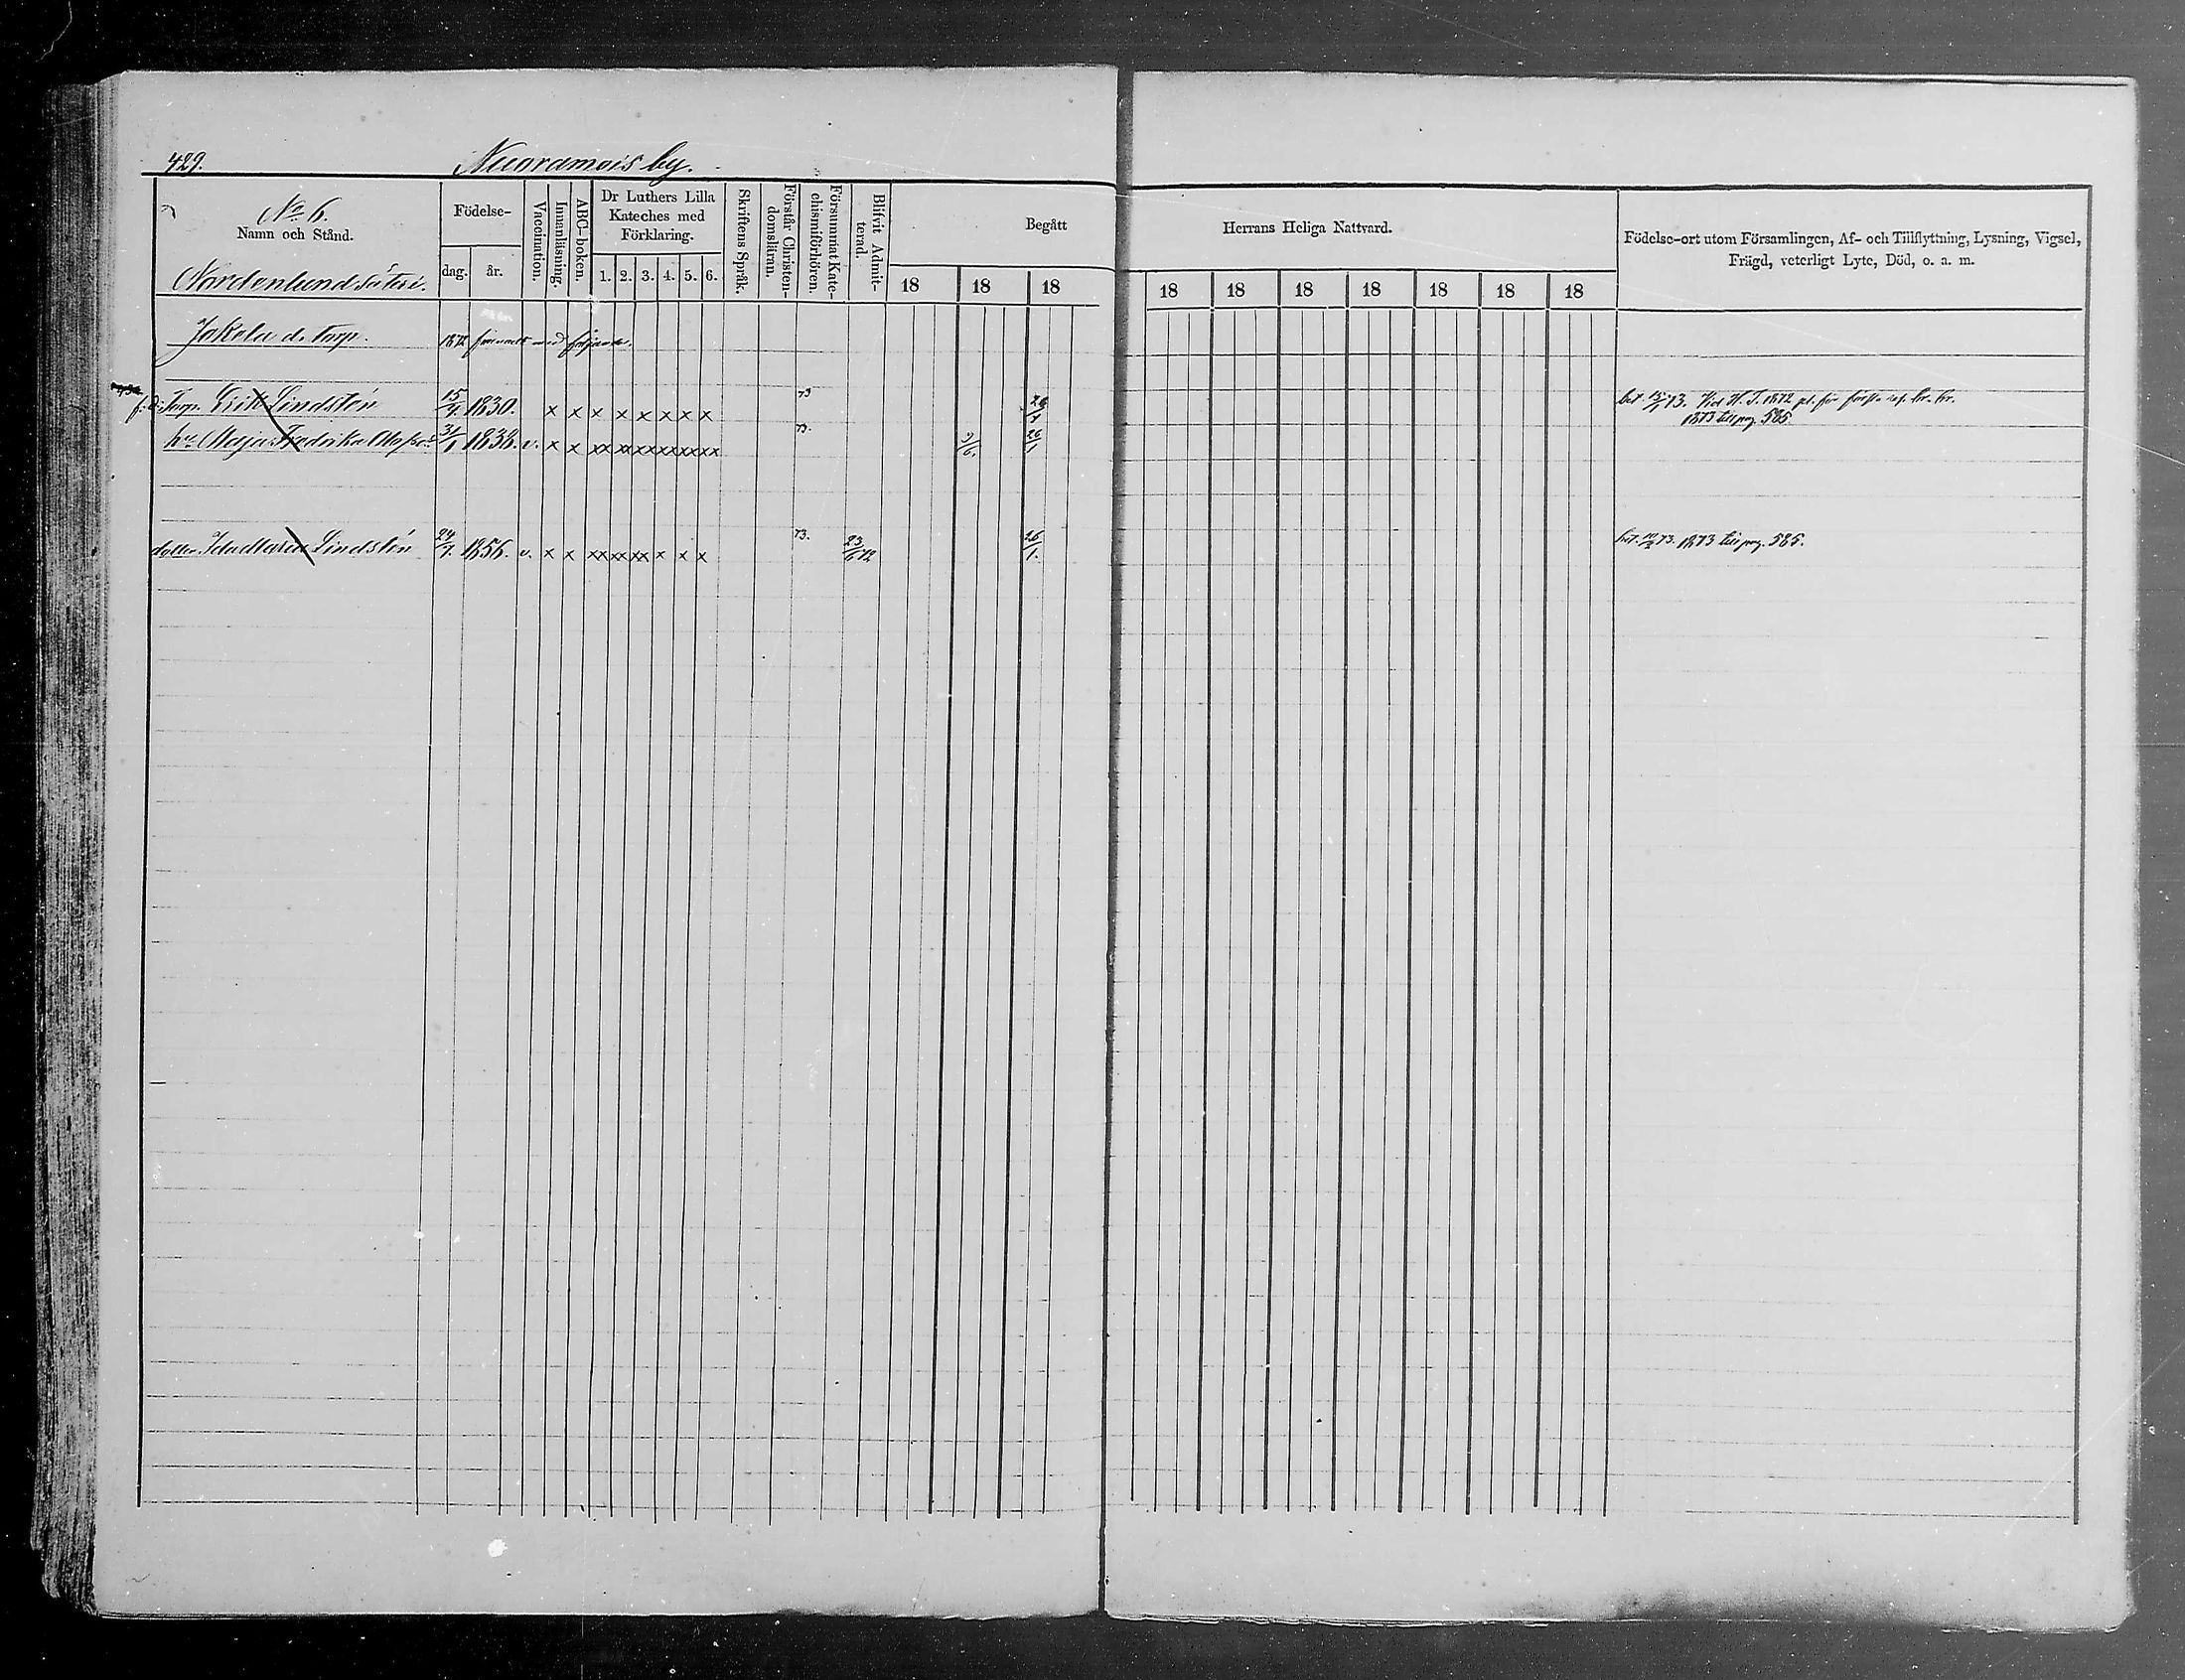 429.
Nuoramois by.
No 6.
Namn och Stånd.
Nordenlund Säteri.
Födelse-
dag.
år.
Vaccination.
Innanläsning.
ABC-boken.
Dr Luthers Lilla
Kateches med
Förklaring.
1. 2. 3. 4. 5. 6.
Skriftens Språk.
Förstår Christen-
domsläran.
Försummat Kate-
chismiförhören.
Blifvit Admit-
terad.
Begått
Herrans Heliga Nattvard.
18 18 18 18 18 18 18 18 18 18
Födelse-ort utom Församlingen, Af- och Tillflyttning, Lysning, Vigsel,
Frägd, veterligt Lyte, Död, o. a. m.
Jokela d. torp.
1872 med
f: d: Torp. Erik Lindstén 15/4 1830. x x x x x x x x 73
bet. 13. 1872 för
1873 till pag. 585.
hu Maja Fredrika 31/1 1838. v. x x xx xx xx xx xx xx 73. 9/6. 26/1
dotter Lindstén 24/7. 1856. v. x x xx xx xx x x x 73. 23/6 72 26/1.
bet. 73. 1873 till pag. 585.